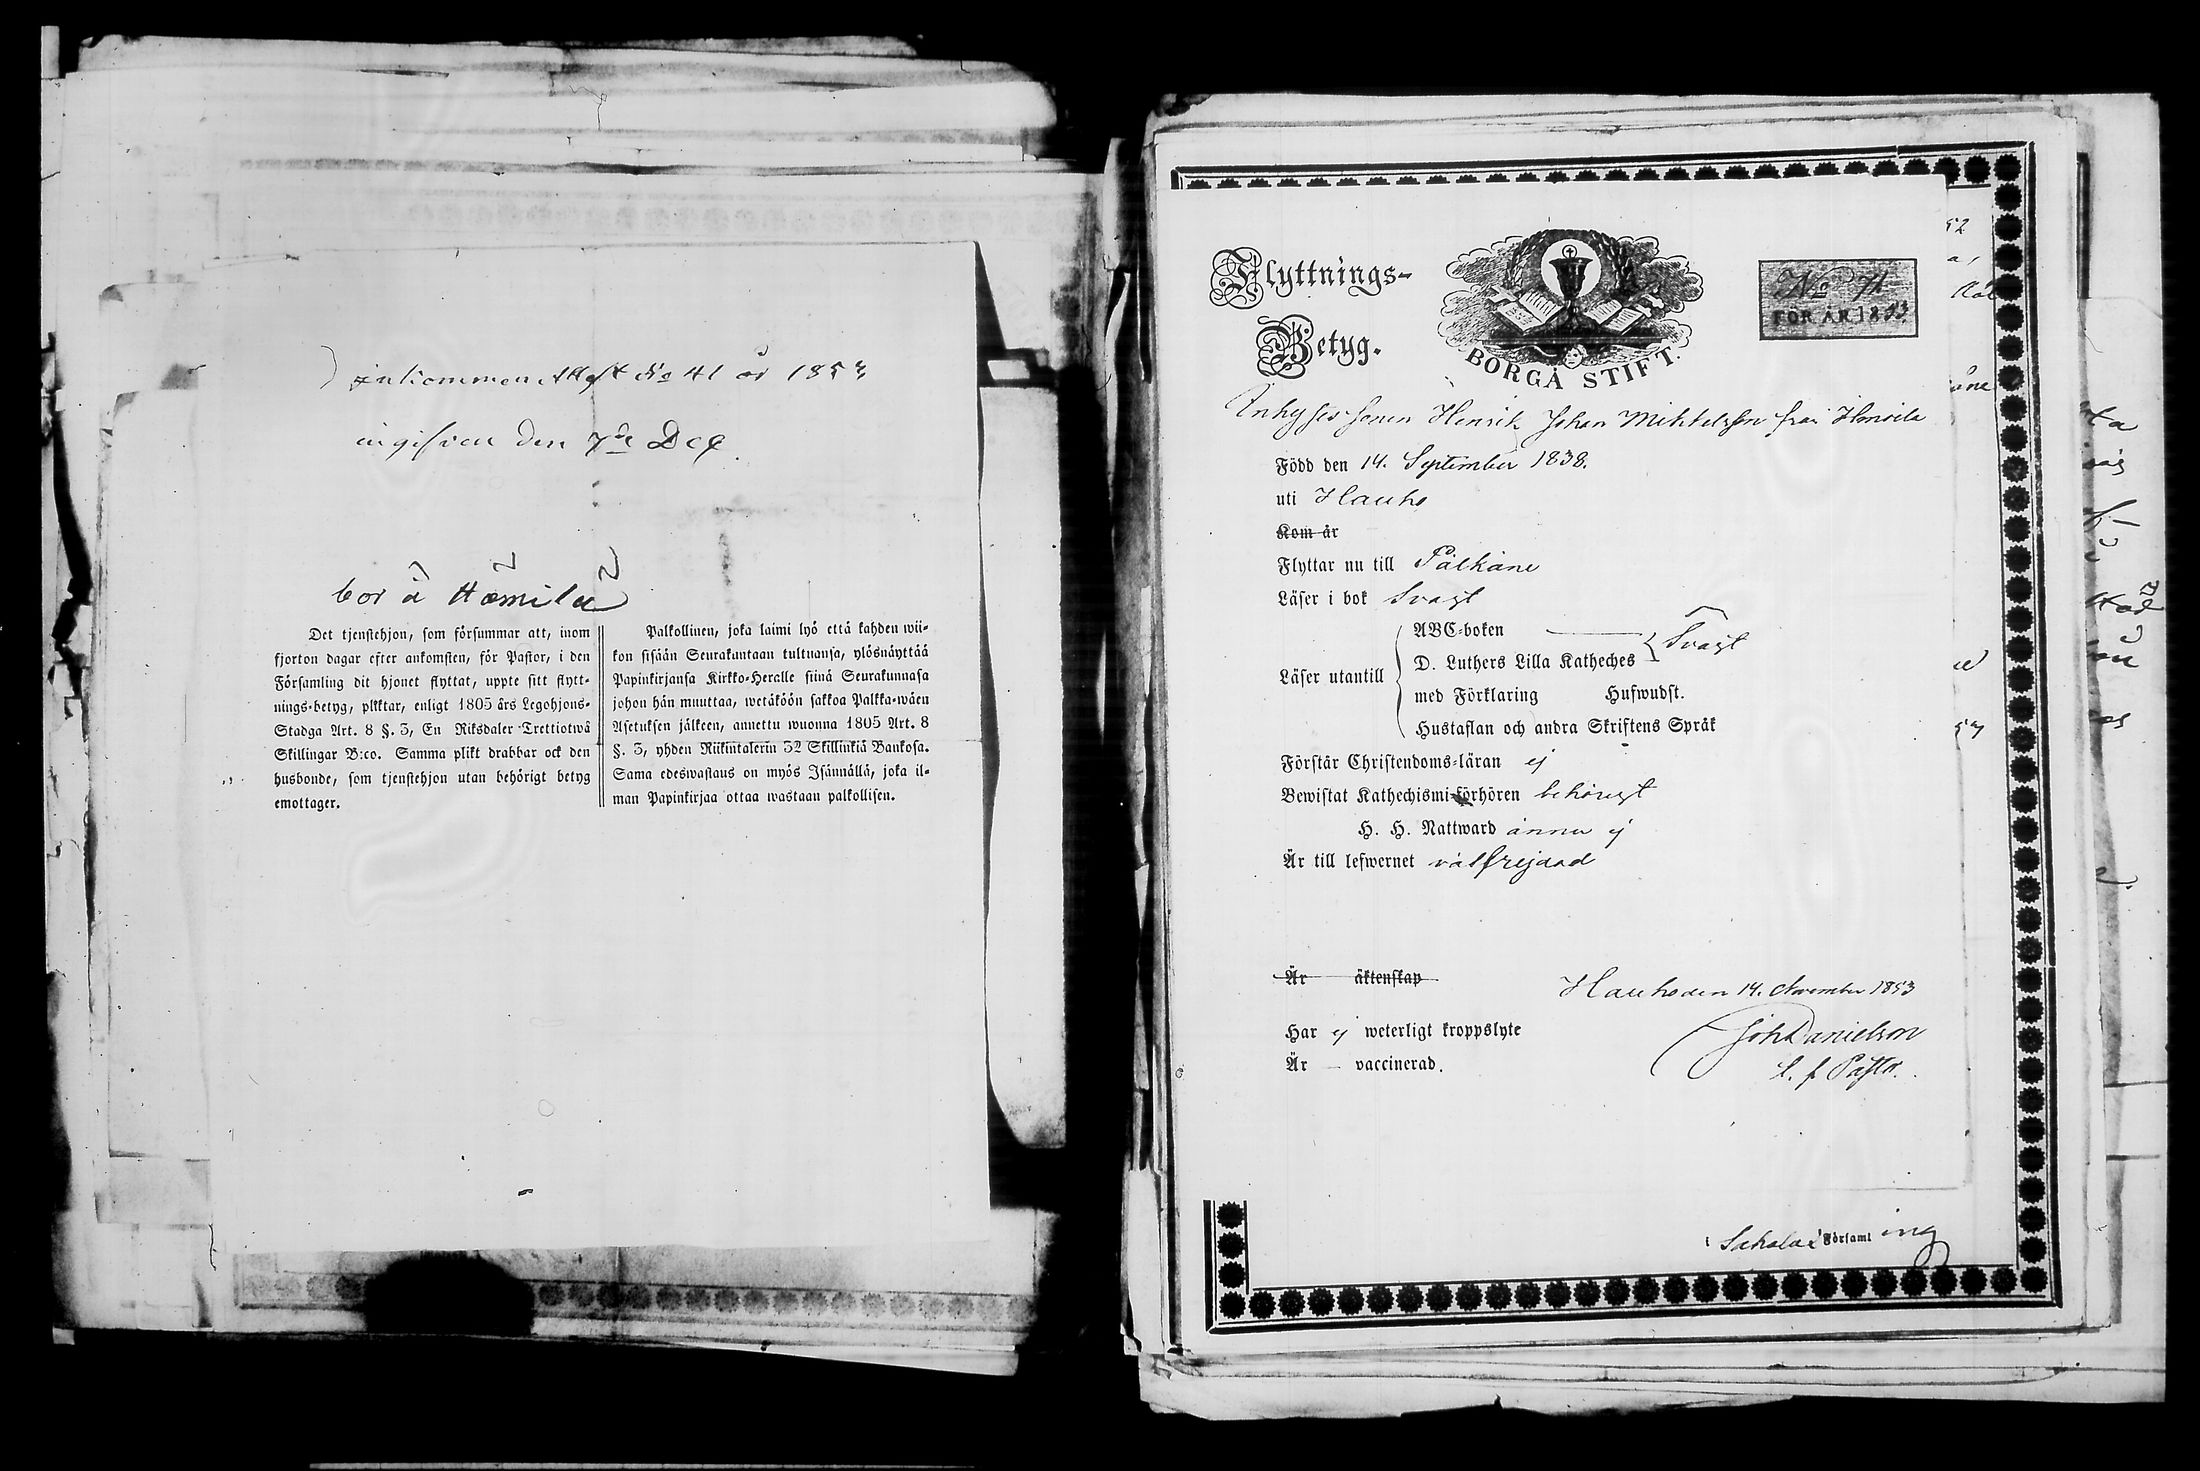 inkommen Attest No 41 år 1853
ingifven den 7de Dec
bor å Hemilä
Det tjenstehjon, som försummar att, inom
fjorton dagar efter ankomsten, för Pastor, i den
Församling dit hjonet flyttat, uppte sitt flytt-
nings-betyg, pliktar, enligt 1805 års Legohjons-
Stadga Art. 8 §. 3, En Riksdaler Trettiotwå
Skillingar B:co. Samma plikt drabbar ock den
husbonde, som tjenstehjon utan behörigt betyg
emottager.
Palkollinen, joka laimi lyö että kahden wii-
kon sisään Seurakuntaan tultuansa, ylösnäyttää
Papinkirjansa Kirkko-Heralle siinä Seurakunnasa
johon hän muuttaa, wetäköön sakkoa Palkka-wäen
Asetuksen jälkeen, annettu wuonna 1805 Art. 8
§. 3, yhden Riikintalerin 32 Skillinkiä Bankosa.
Sama edeswastaus on myös Isännällä, joka il-
man Papinkirjaa ottaa wastaan palkollisen.
Flyttnings-
Betyg.
BORGÅ STIFT.
No 41
FÖR ÅR 1853.
Inhyses sonen Henrik Johan Mikkelsson från
Född den 14. September 1838.
uti Hauho
Kom år
Flyttar nu till Pälkäne
Läser i bok Svagt
Läser utantill
ABC-boken
D. Luthers Lilla Kateches Svagt
med Förklaring Hufwudst.
Hustaflan och andra Skriftens Språk
Förstår Christendoms-läran ej
Bewistat Kathechismi-förhören behörigt
H. H. Nattward ännu ej
Är till lefwernet välfrejdad
Är äktenskap
Hauho den 14. November 1853
Har ej weterligt kroppslyte
Joh Danielson
Är — vaccinerad.
t. f. Pastor.
i Sahalax Församling
52
57